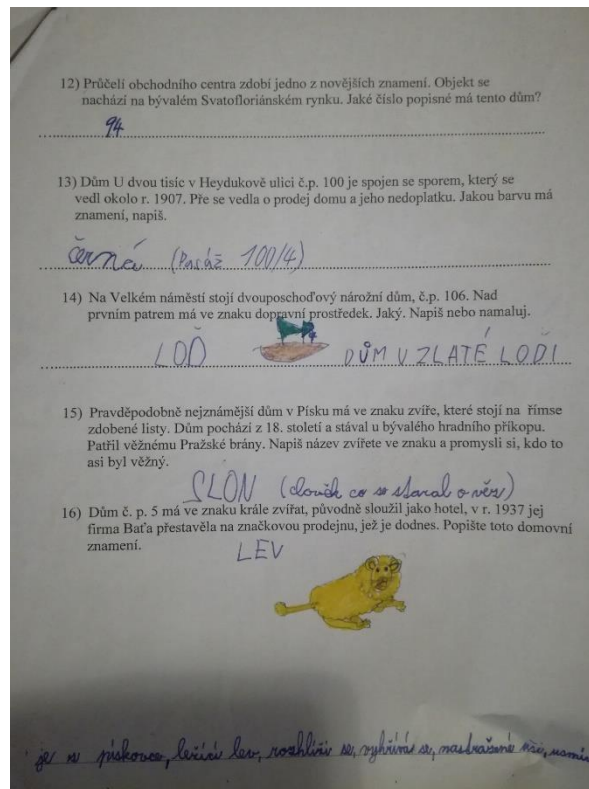 12) Průčelí obchodního centra zdobí jedno z novějších znamení. Objekt se
nachází na bývalém Svatofloriánském rynku. Jaké číslo popisné má tento dům?
94
13) Dům U dvou tisíc v Heydukově ulici č.p. 100 je spojen se sporem, který se
vedl okolo r. 1907. Pře se vedla o prodej domu a jeho nedoplatku. Jakou barvu má
znamení, napiš.
černá (Pasáž 100/4)
14) Na Velkém náměstí stojí dvouposchoďový nárožní dům, č.p. 106. Nad
prvním patrem má ve znaku dopravní prostředek. Jaký. Napiš nebo namaluj.
LOĎ DŮM U ZLATÉ LODI
15) Pravděpodobně nejznámější dům v Písku má ve znaku zvíře, které stojí na římse
zdobené listy. Dům pochází z 18. století a stával u bývalého hradního příkopu.
Patřil věžnému Pražské brány. Napiš název zvířete ve znaku a promysli si, kdo to
asi byl věžný.
SLON (člověk co se staral o věž)
16) Dům č. p. 5 má ve znaku krále zvířat, původně sloužil jako hotel, v r. 1937 jej
firma Baťa přestavěla na značkovou prodejnu, jež je dodnes. Popište toto domovní
znamení.
LEV
je z pískovce, ležící lev, rozhlíží se, vyhřívá se, nastražené uši,